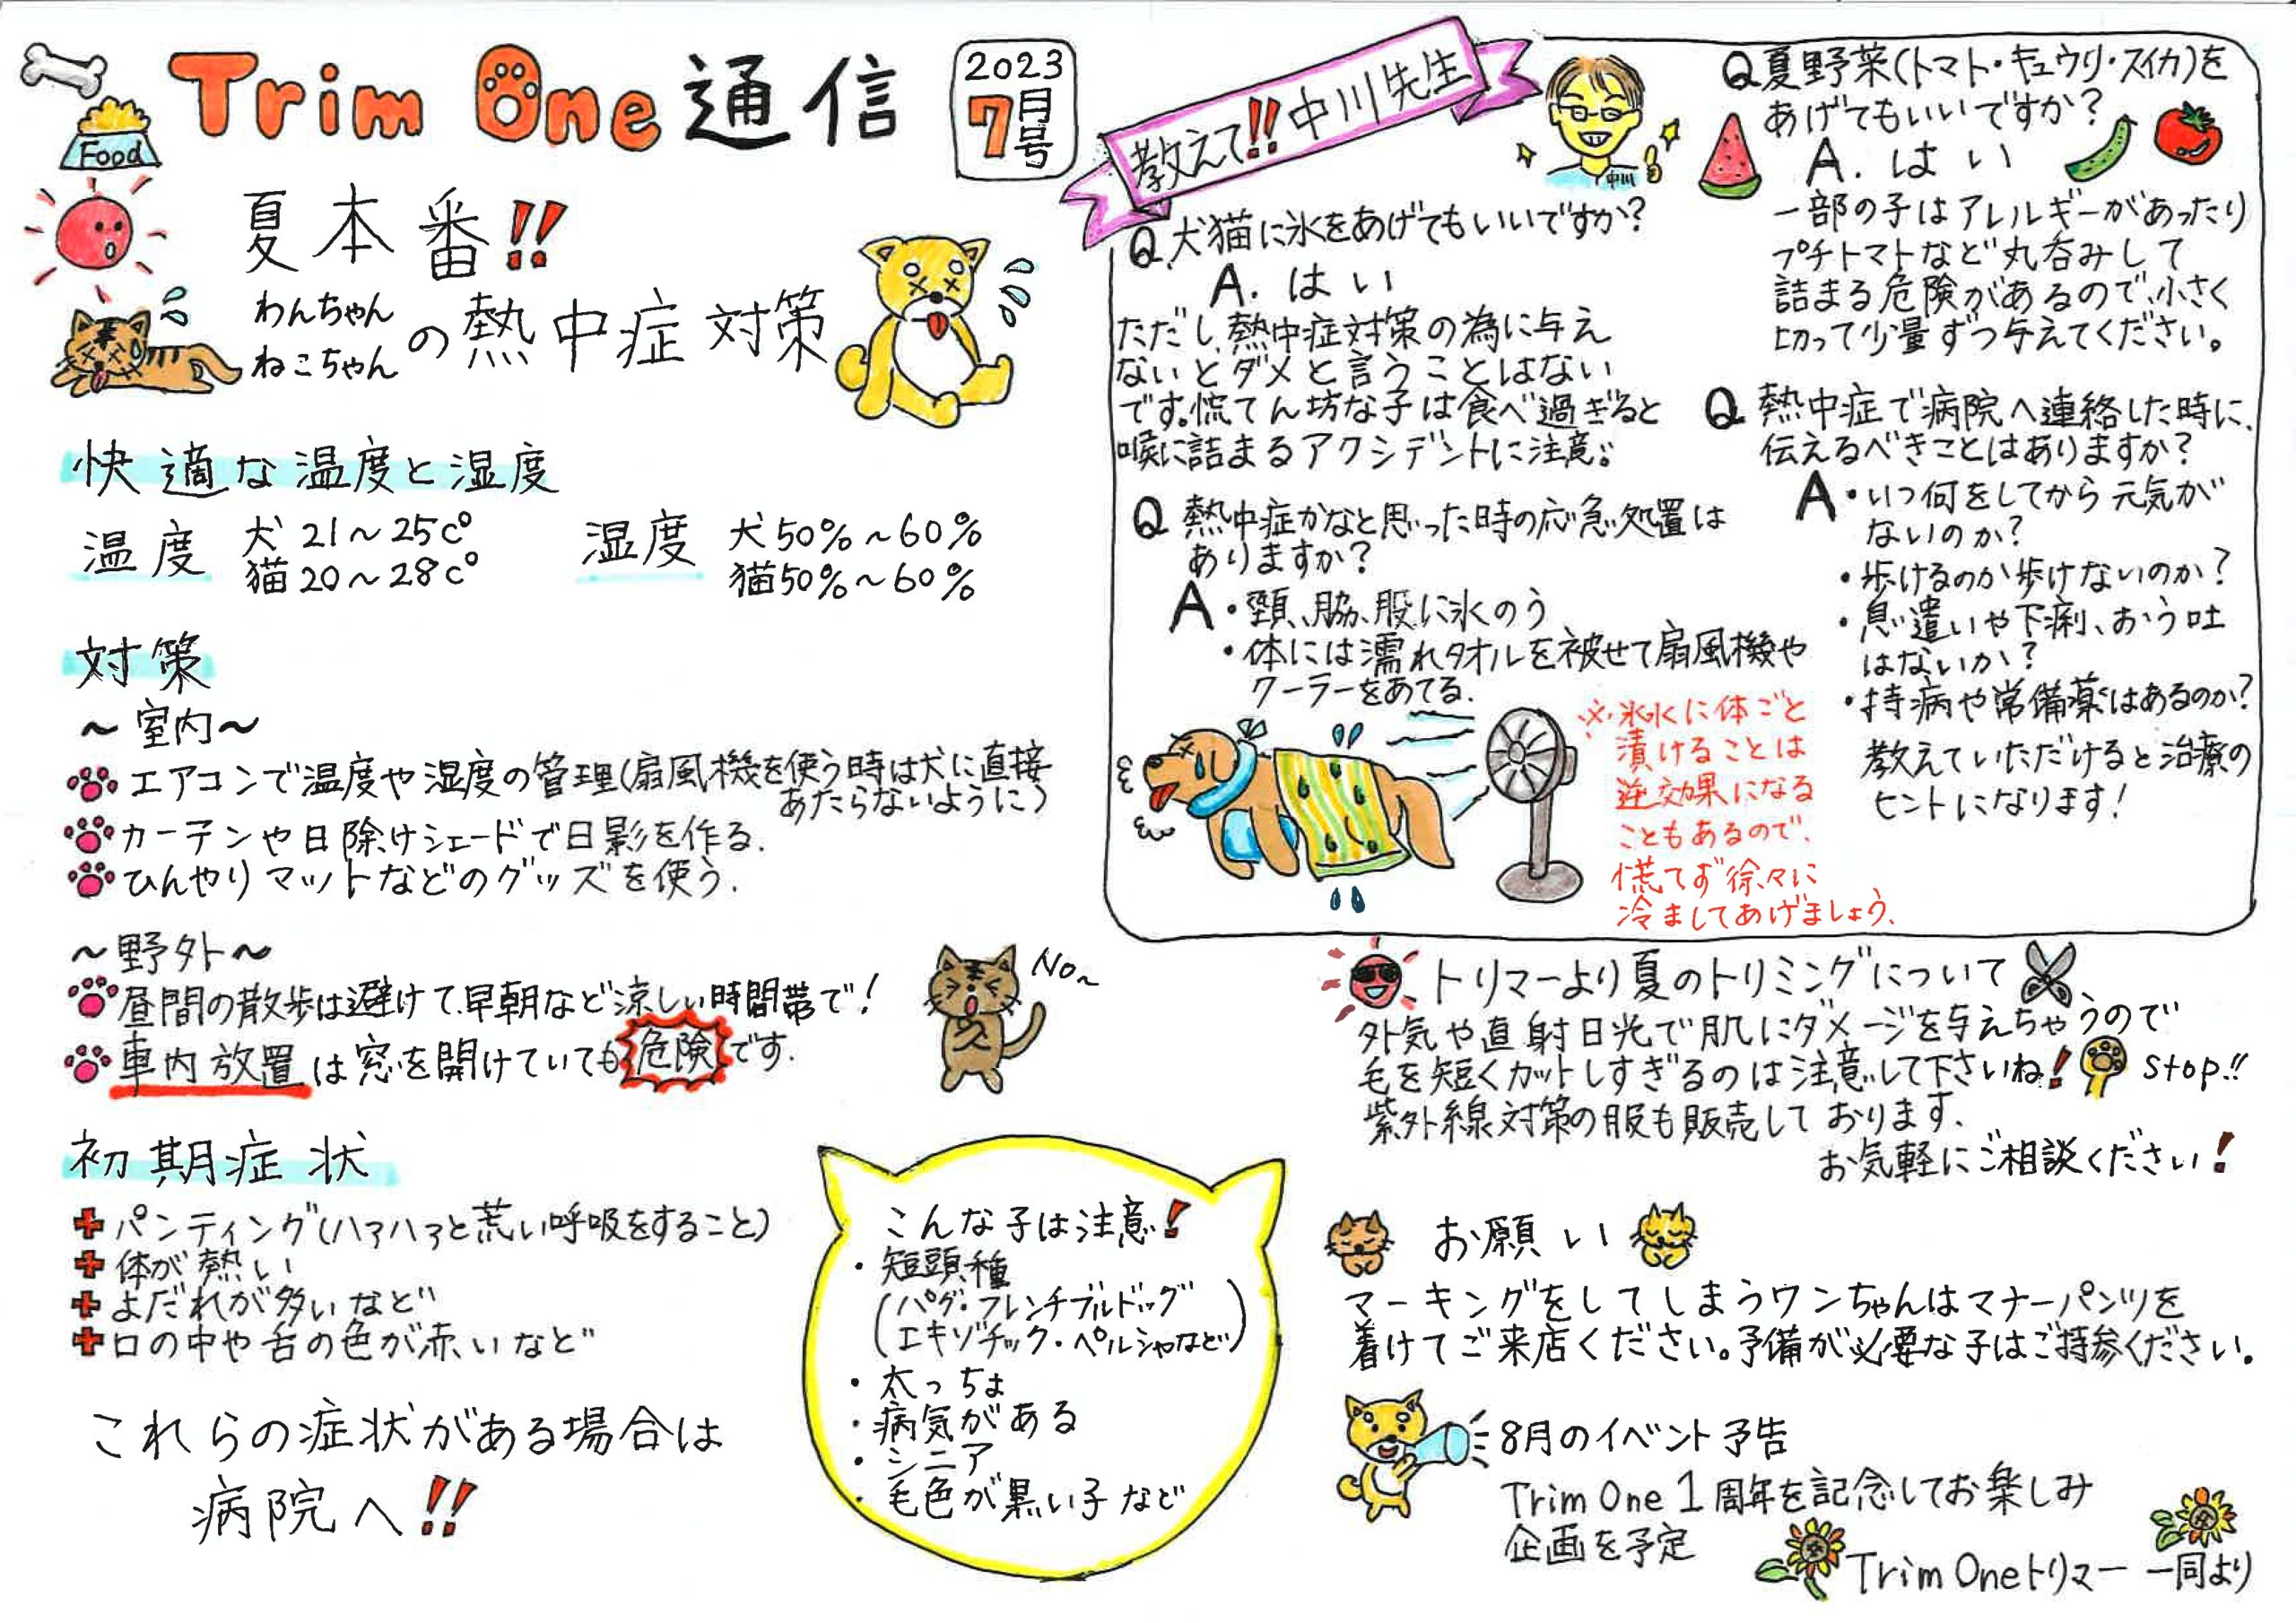 Trim One 通信
2023
7月号
Food
夏本番!!
わんちゃん
ねこちゃん
の熱中症対策
快適な温度と湿度
温度 犬 21～25c°
猫 20～28c°
湿度 犬 50%～60%
猫 50%～60%
対策
～室内～
エアコンで温度や湿度の管理(扇風機を使う時は犬に直接
あたらないように)
カーテンや日除けシェードで日影を作る.
ひんやりマットなどのグッズを使う.
～野外～
昼間の散歩は避けて、早朝など涼しい時間帯で!
車内放置は窓を開けていても危険です.
No～
初期症状
パンティング(ハァハァと荒い呼吸をすること)
体が熱い
よだれが多いなど
口の中や舌の色が赤いなど
これらの症状がある場合は
病院へ!!
こんな子は注意!
・短頭種
(パグ・フレンチブルドッグ
エキゾチック・ペルシャなど)
・太っちょ
・病気がある
・シニア
・毛色が黒い子など
教えて!!中川先生
中川
Q.犬猫に氷をあげてもいいですか?
A. はい
ただし、熱中症対策の為に与え
ないとダメと言うことはない
です。慌てん坊な子は食べ過ぎると
喉に詰まるアクシデントに注意。
Q 熱中症かなと思った時の応急処置は
ありますか?
A・頸、脇、股に氷のう
・体には濡れタオルを被せて扇風機や
クーラーをあてる.
※氷水に体ごと
漬けることは
逆効果になる
こともあるので、
慌てず徐々に
冷ましてあげましょう.
Q 夏野菜(トマト・キュウリ・スイカ)を
あげてもいいですか?
A. はい
一部の子はアレルギーがあったり
プチトマトなど丸呑みして
詰まる危険があるので、小さく
切って少量ずつ与えてください。
Q 熱中症で病院へ連絡した時に、
伝えるべきことはありますか?
A・いつ何をしてから元気が
ないのか?
・歩けるのか歩けないのか?
・息遣いや下痢、おう吐
はないか?
・持病や常備薬はあるのか?
教えていただけると治療の
ヒントになります!
トリマーより夏のトリミングについて
外気や直射日光で肌にダメージを与えちゃうので
毛を短くカットしすぎるのは注意して下さいね! stop!!
紫外線対策の服も販売しております.
お気軽にご相談ください!
お願い
マーキングをしてしまうワンちゃんはマナーパンツを
着けてご来店ください。予備が必要な子はご持参ください.
8月のイベント予告
Trim One 1周年を記念してお楽しみ
企画を予定
Trim Oneトリマー 一同より